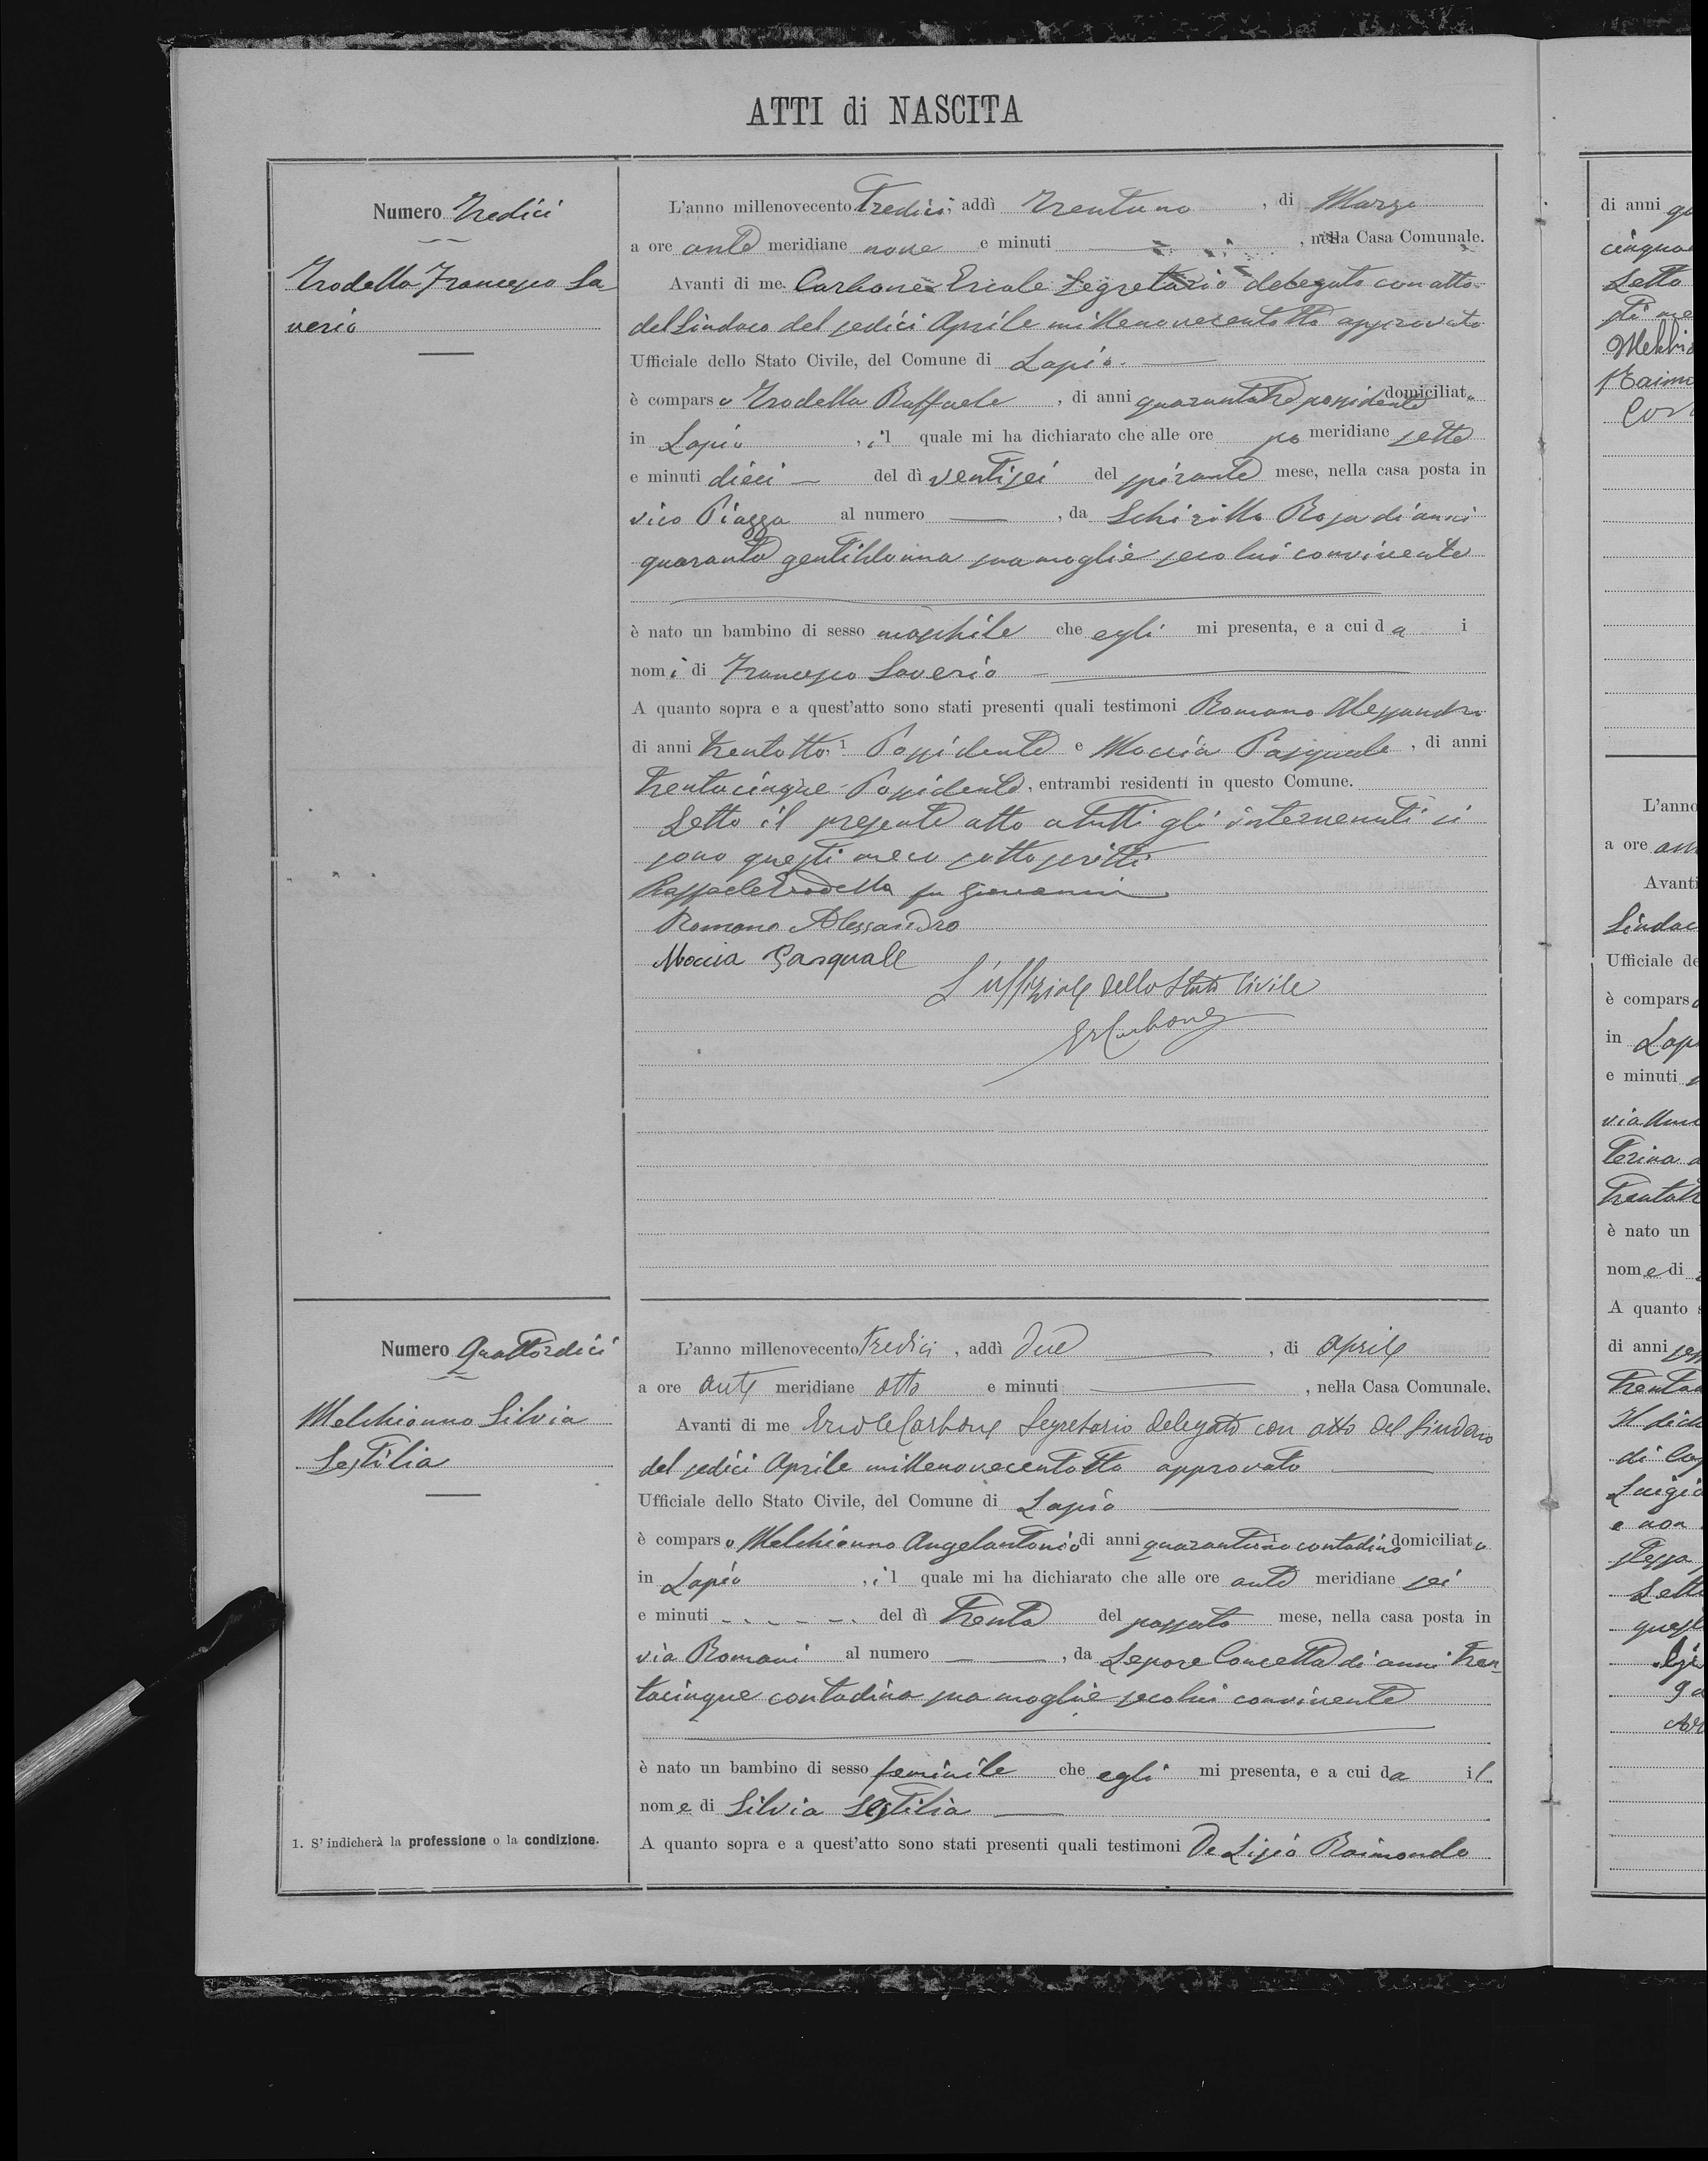 ATTI di NASCITA
Numero Tredici
Trodella Francesco Sa
verio
L'anno millenovecento Tredici, addì Trentuno, di Marzo
a ore ante meridiane nove e minuti ———, nella Casa Comunale.
Avanti di me Carbone Ercole Segretario delegato con atto
del Sindaco del sedici Aprile millenovecentotto approvato
Ufficiale dello Stato Civile, del Comune di Lapio. —
è comparso Trodella Raffaele, di anni quarantatre possidente domiciliato
in Lapio, il quale mi ha dichiarato che alle ore po meridiane sette
e minuti dieci — del dì ventisei del spirante mese, nella casa posta in
vico Piazza al numero —, da Schirillo Rosa di anni
quaranta gentildonna sua moglie seco lui convivente
è nato un bambino di sesso maschile che egli mi presenta, e a cui da i
nomi di Francesco Saverio —
A quanto sopra e a quest'atto sono stati presenti quali testimoni Romano Alessandro
di anni trentotto, 1 Possidente e Moccia Pasquale, di anni
trentacinque Possidente, entrambi residenti in questo Comune.
Letto il presente atto a tutti gli intervenuti si
sono questi meco sottoscritti
Raffaele Trodella fu Giovanni
Romano Alessandro
Moccia Pasquale
L'uffiziale dello Stato Civile
ErCarbone
Numero Quattordici
Melchionno Silvia
Sestilia
L'anno millenovecento tredici, addì due —, di Aprile
a ore ante meridiane otto e minuti ———, nella Casa Comunale.
Avanti di me Ercole Carbone Segretario delegato con atto del Sindaco
del sedici Aprile millenovecentotto approvato —
Ufficiale dello Stato Civile, del Comune di Lapio —
è comparso Melchionno Angelantonio di anni quarantuno 1 contadino domiciliato
in Lapio, il quale mi ha dichiarato che alle ore ante meridiane sei
e minuti - - - - del dì trenta del passato mese, nella casa posta in
via Romani al numero — —, da Lepore Concetta di anni tren
tacinque contadina sua moglie seco lui convivente
è nato un bambino di sesso feminile che egli mi presenta, e a cui da il
nome di Silvia Sestilia —
A quanto sopra e a quest'atto sono stati presenti quali testimoni De Lisio Raimondo
1. S'indicherà la professione o la condizione.
di anni
Letto
L'anno
a ore
Avanti
Sindac
Ufficiale de
è compars
in Lap
e minuti
è nato un
nome di
A quanto s
di anni